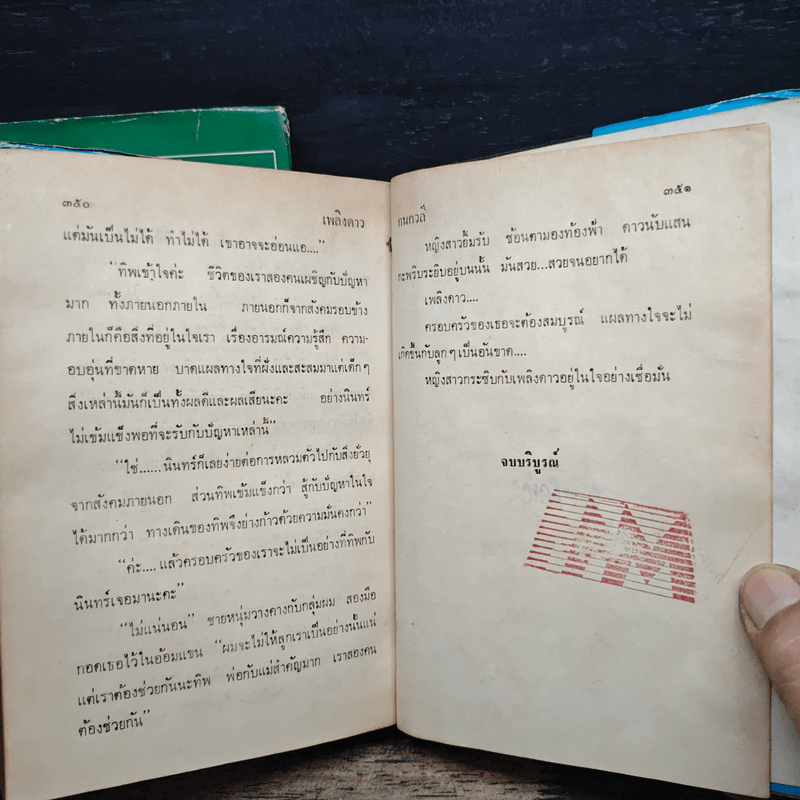 ๓๕๐
เพลิงดาว
แต่มันเป็นไม่ได้ ทำไม่ได้ เขาอาจจะอ่อนแอ....”
“ทิพเข้าใจค่ะ ชีวิตของเราสองคนเผชิญกับปัญหา
มาก ทั้งภายนอกภายใน ภายนอกก็จากสังคมรอบข้าง
ภายในก็คือสิ่งที่อยู่ในใจเรา เรื่องอารมณ์ความรู้สึก ความ-
อบอุ่นที่ขาดหาย บาดแผลทางใจที่ฝังและสะสมมาแต่เด็กๆ
สิ่งเหล่านี้มันก็เป็นทั้งผลดีและผลเสียนะคะ อย่างนินทร์
ไม่เข้มแข็งพอที่จะรับกับปัญหาเหล่านี้”
“ใช่......นินทร์ก็เลยง่ายต่อการหลวมตัวไปกับสิ่งยั่วยุ
จากสังคมภายนอก ส่วนทิพเข้มแข็งกว่า สู้กับปัญหาในใจ
ได้มากกว่า ทางเดินของทิพจึงย่างก้าวด้วยความมั่นคงกว่า”
“ค่ะ....แล้วครอบครัวของเราจะไม่เป็นอย่างที่ทิพกับ
นินทร์เจอมานะคะ”
“ไม่แน่นอน” ชายหนุ่มวางคางกับกลุ่มผม สองมือ
กอดเธอไว้ในอ้อมแขน “ผมจะไม่ให้ลูกเราเป็นอย่างนั้นแน่
แต่เราต้องช่วยกันนะทิพ พ่อกับแม่สำคัญมาก เราสองคน
ต้องช่วยกัน”
กนกวลี
๓๕๑
หญิงสาวยิ้มรับ ช้อนตามองท้องฟ้า ดาวนับแสน
กะพริบระยิบอยู่บนนั้น มันสวย...สวยจนอยากได้
เพลิงดาว....
ครอบครัวของเธอจะต้องสมบูรณ์ แผลทางใจจะไม่
เกิดขึ้นกับลูกๆ เป็นอันขาด....
หญิงสาวกระซิบกับเพลิงดาวอยู่ในใจอย่างเชื่อมั่น
จบบริบูรณ์